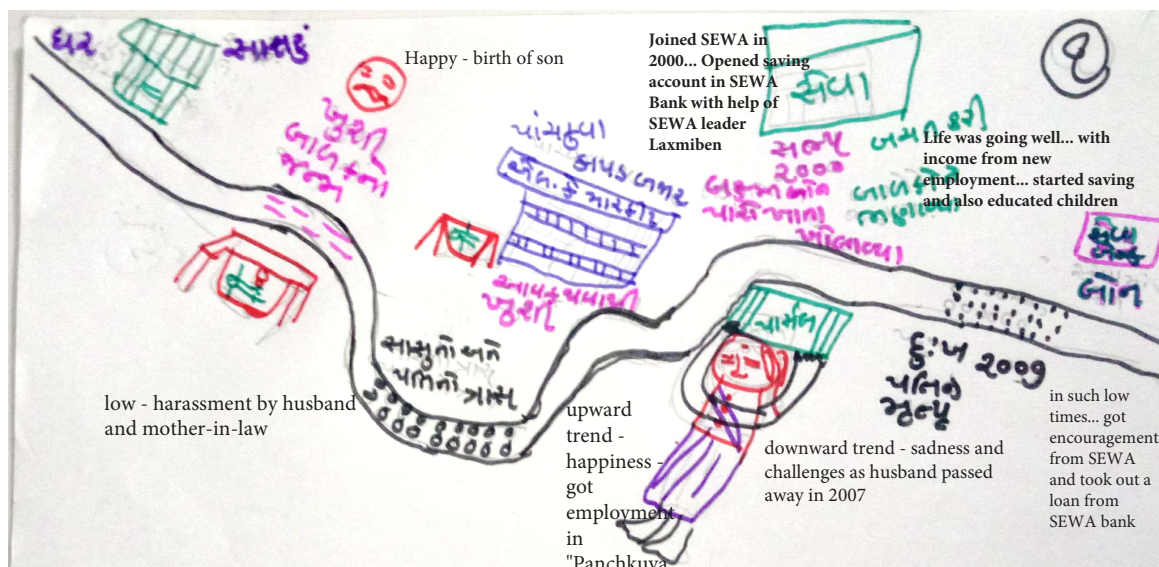 ઘર
સાસરું
Happy - birth of son
ખુશી
બાળકનો
જન્મ
Joined SEWA in
2000... Opened saving
account in SEWA
Bank with help of
SEWA leader
Laxmiben
સેવા
સભ્ય
૨૦૦૦
પાસે ખાતા
ખોલાવ્યા
બચત કરી
બાળકોને
ભણાવ્યા
Life was going well... with
income from new
employment... started saving
and also educated children
પાંચકુવા
કાપડ બજાર
આવક થવાથી
ખુશી
સાસુનો અને
પતિનો ત્રાસ
low - harassment by husband
and mother-in-law
upward
trend -
happiness -
got
employment
in
"Panchkuva
પાર્સલ
downward trend - sadness and
challenges as husband passed
away in 2007
દુ:ખ ૨૦૦૭
પતિનું
મૃત્યુ
સેવા
બેન્ક
લોન
in such low
times... got
encouragement
from SEWA
and took out a
loan from
SEWA bank